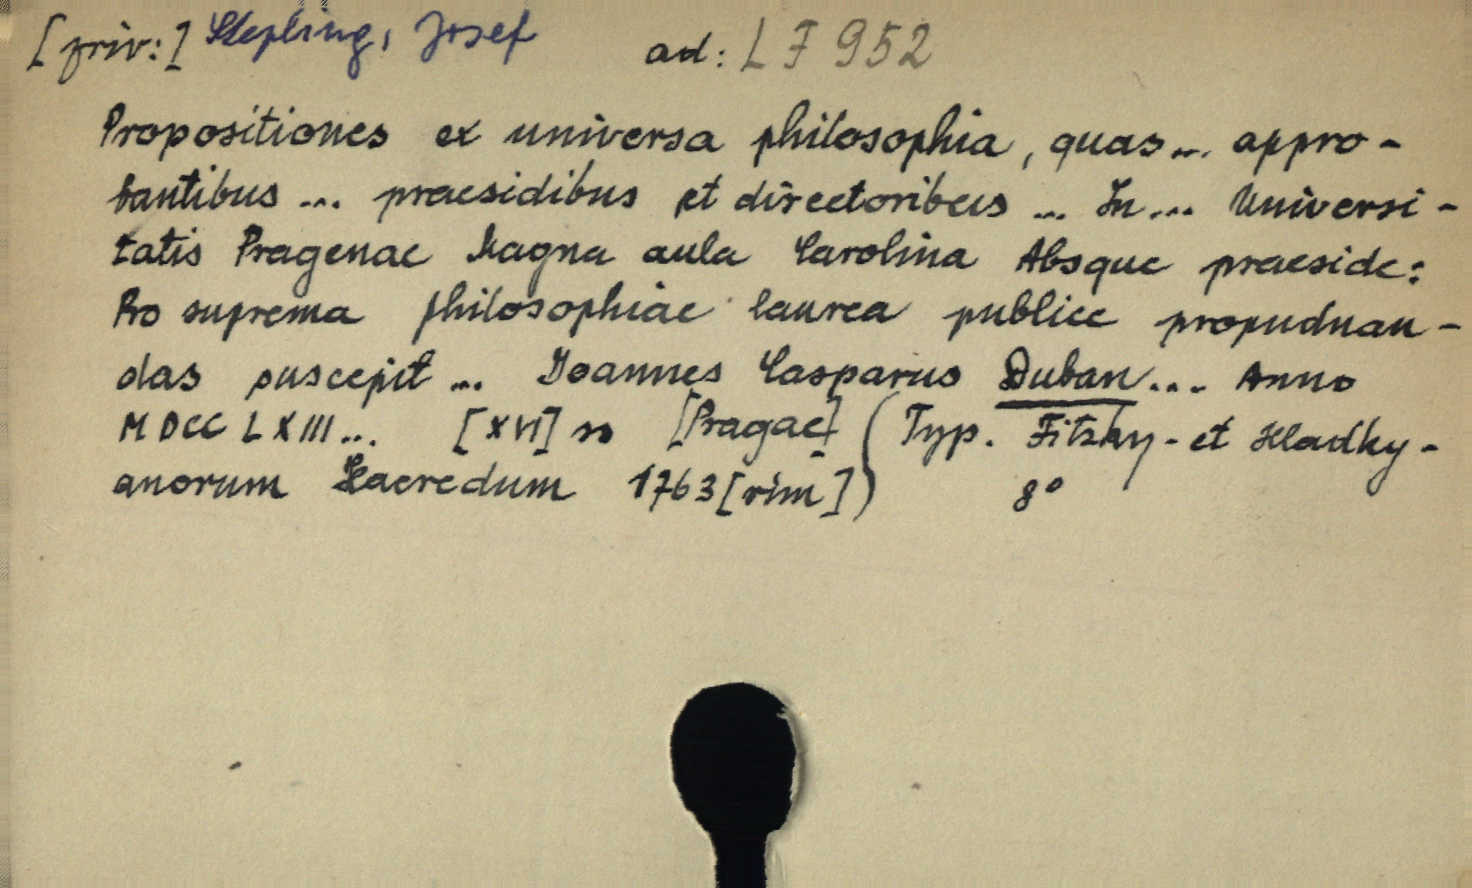 [priv:] Stepling, Josef ad: L F 952
Propositiones ex universa philosophia, quas... appro-
bantibus ... praesidibus et directoribus ... In... Universi-
tatis Pragenae Magna aula Carolina Absque praeside:
Pro suprema philosophiae laurea publice propudnan-
das suscepit ... Joannes Casparus Duban... Anno
MDCC LXIII... [XVI] ss [Pragae] (Typ. Fitzky- et Hladky-
anorum Haeredum 1763 [rim]) 8°